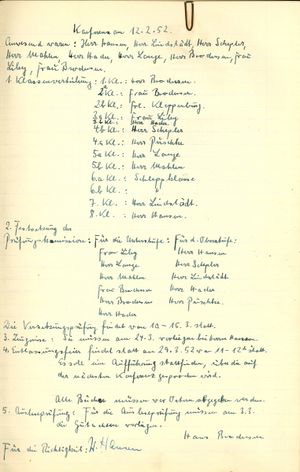 Konferenz am 12.2.52.
Anwesend waren: Herr Hansen, Herr Lindstädt, Herr Schepler,
Herr Mahlen, Herr Hacke, Herr Lange, Herr Brodersen, Frau
Liley, Frau Brodersen.
1. Klassenverteilung: 1. Kl.: Herr Brodersen.
2. Kl.: Frau Brodersen
2b Kl.: Frl. Kleppenburg
3a Kl.: Frau Liley
3b Kl.: Herr Hacke
4b Kl.: Herr Schepler
4a Kl.: Herr Püschke
5a Kl.: Herr Lange
5b Kl.: Herr Mahlen
6a Kl.:
6b Kl.:
7. Kl.: Herr Lindstädt.
8. Kl.: Herr Hansen.
2. Festsetzung der
Prüfungskommission: Für die Unterstufe: Für d. Oberstufe:
Frau Liley Herr Hansen
Herr Lange Herr Schepler
Herr Mahlen Herr Lindstädt
Frau Brodersen Herr Hacke
Herr Brodersen Herr Püschke.
Herr Hacke
Die Versetzungsprüfung findet vom 10.-15.3. statt.
3. Zeugnisse: Sie müssen am 24.3. vorliegen bei Herrn Hansen.
4. Entlassungsfeier findet statt am 29.3.52 von 11-12 statt.
Es soll ein Aufführung stattfinden, über die auf
der nächsten Konferenz gesprochen wird.
Alle Bücher müssen vor Ostern abgegeben werden.
5. Aufbauprüfung: Für die Aufbauprüfung müssen am 3.3.
die Gutachten vorliegen.
Hans Brodersen
Für die Richtigkeit: H. Hansen